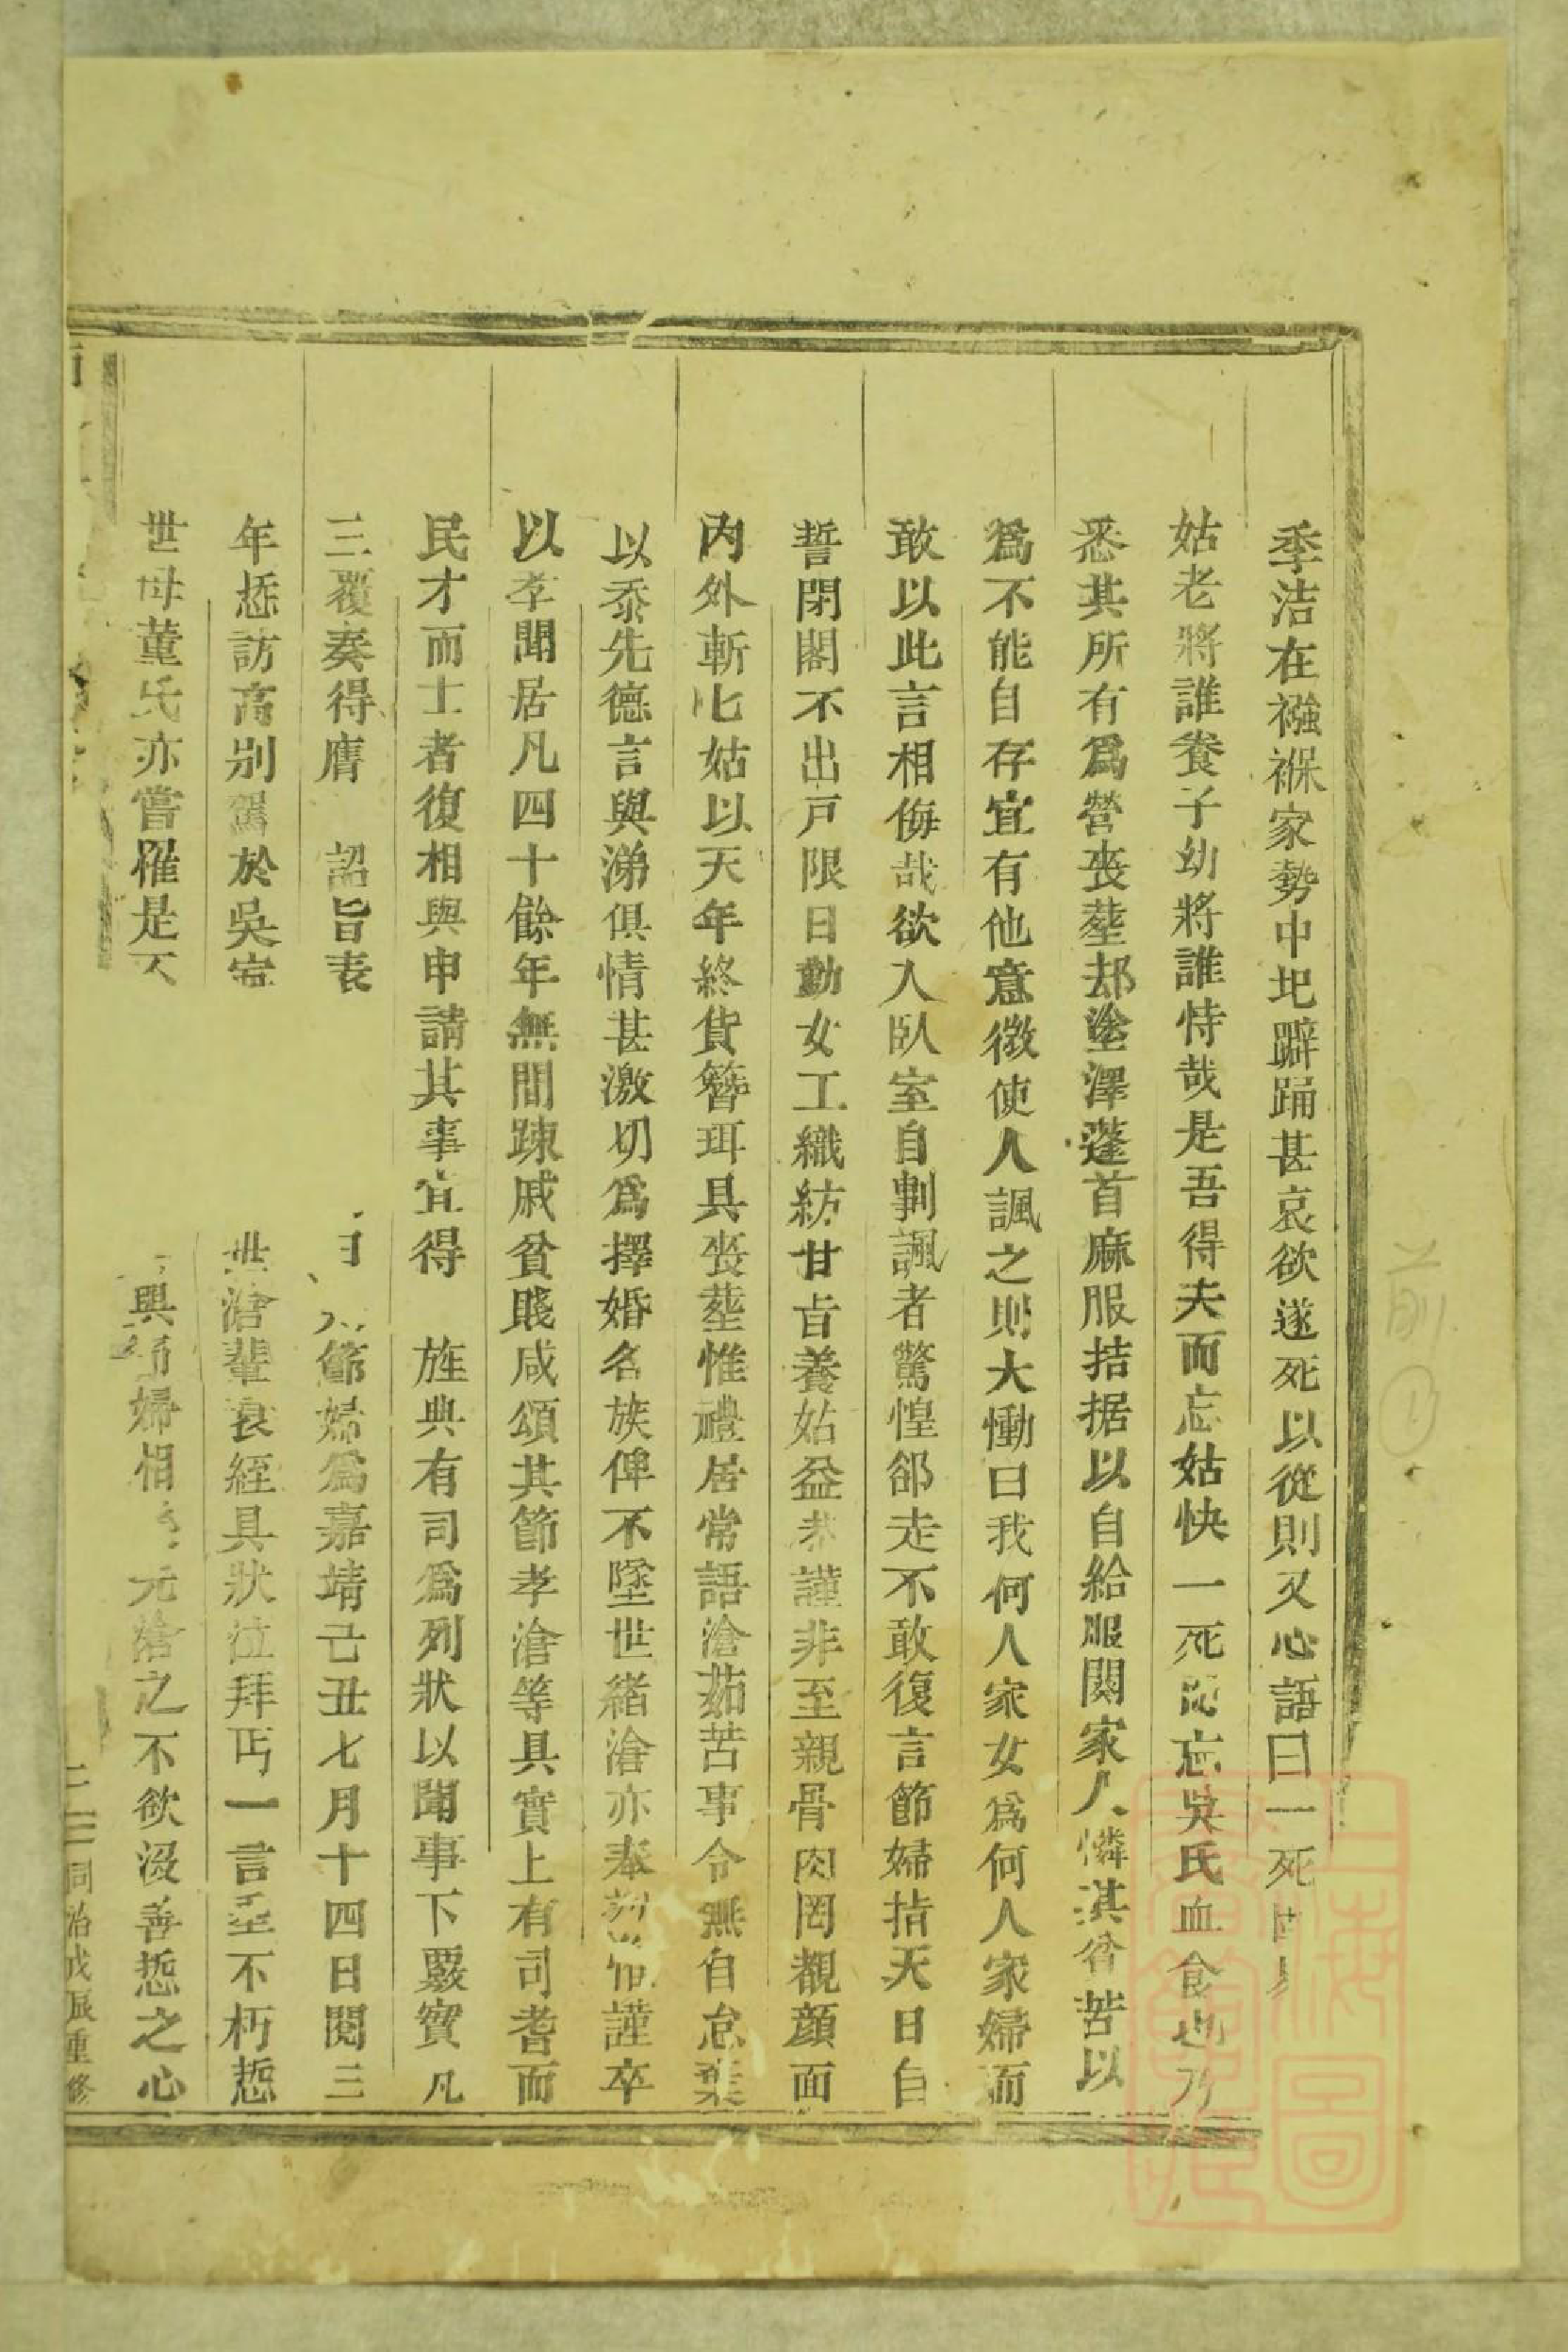 季洁在襁褓家勢中圮躃踊甚哀欲遂死以從則又心語曰一死
姑老將誰養子幼將誰恃哉是吾得夫而忘姑快一死而忘吳氏血食也乃
悉其所有爲營喪塟却塗澤蓬首麻服拮据以自給服闋家人憐其苦以
爲不能自存宜有他意微使人諷之則大慟曰我何人家女爲何人家婦而
敢以此言相侮哉欲入臥室自剚諷者驚惶郤走不敢復言節婦指天日自
誓閉閣不出戸限日勤女工織紡甘旨養姑益恭謹非至親骨肉罔覩顔面
内外斬斬姑以天年終貨簪珥具喪塟惟禮居常語滄茹苦事令無自怠棄
以忝先德言與涕俱情甚激切爲擇婚名族俾不墜世緒滄亦奉謹卒
以孝聞居凡四十餘年無間踈戚貧賤咸頌其節孝滄等具實上有司耆而
民才而士者復相與申請其事宜得 旌典有司爲列狀以聞事下覈實凡
三覆奏得膺 詔旨表 節婦爲嘉靖己丑七月十四日閲三
年惁訪高别駕於吳 滄輩衰絰具狀泣拜丐一言垂不朽惁
世母董氏亦嘗罹是 與節婦相 滄之不欲没善惁之心
二三 同治戊辰重修
上海圖書館藏
前